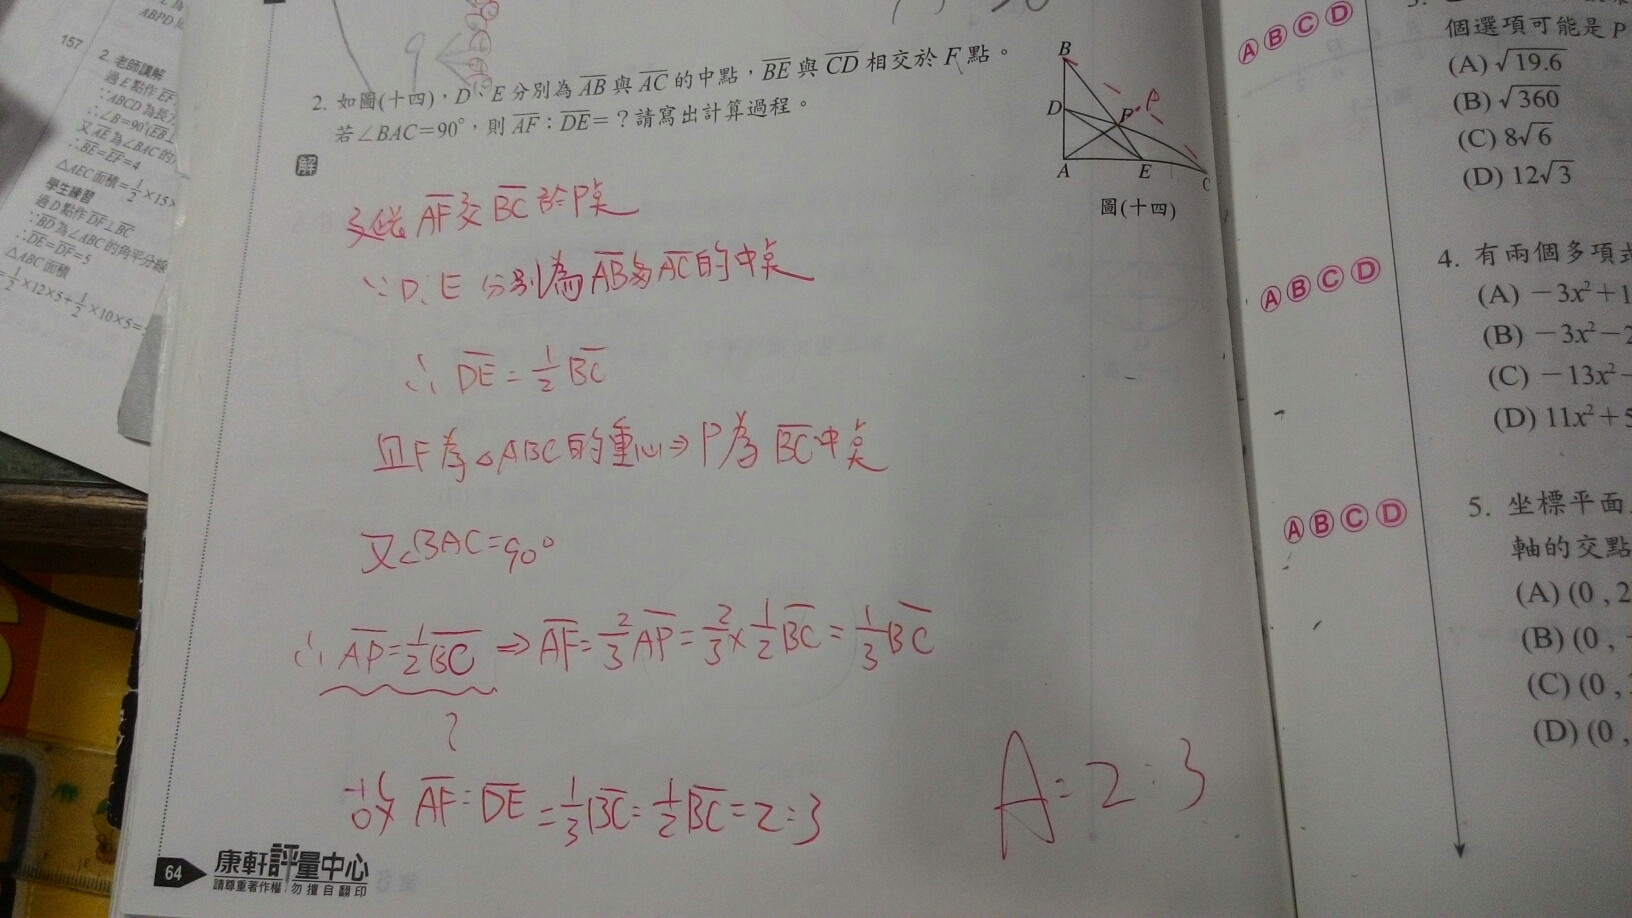 ABPD
157
2. 老師講解
過E點作EF
∵ABCD為長方
∴∠B=90°(EB⊥
又AE為∠BAC的
∴BE=EF=4
△AEC面積=1/2×15×
學生練習
過D點作DF⊥BC
∵BD為∠ABC的角平分線
∴DE=DF=5
△ABC面積
=1/2×12×5+1/2×10×5=
9
2. 如圖(十四),D、E分別為AB與AC的中點,BE與CD相交於F點。
若∠BAC=90°,則AF:DE=?請寫出計算過程。
解
B
D
F
P
A
E
C
圖(十四)
延長AF交BC於P點
∵D、E分別為AB與AC的中點
∴DE=1/2BC
且F為△ABC的重心⇒P為BC中點
又∠BAC=90°
∴AP=1/2BC⇒AF=2/3AP=2/3×1/2BC=1/3BC
?
故AF:DE=1/3BC:1/2BC=2:3
A=2:3
64
康軒評量中心
請尊重著作權 勿擅自翻印
A B C D
個選項可能是P
(A) √19.6
(B) √360
(C) 8√6
(D) 12√3
A B C D
4. 有兩個多項式
(A) −3x²+1
(B) −3x²−2
(C) −13x²−
(D) 11x²+5
A B C D
5. 坐標平面
軸的交點
(A) (0 , 2
(B) (0 ,
(C) (0 ,
(D) (0 ,